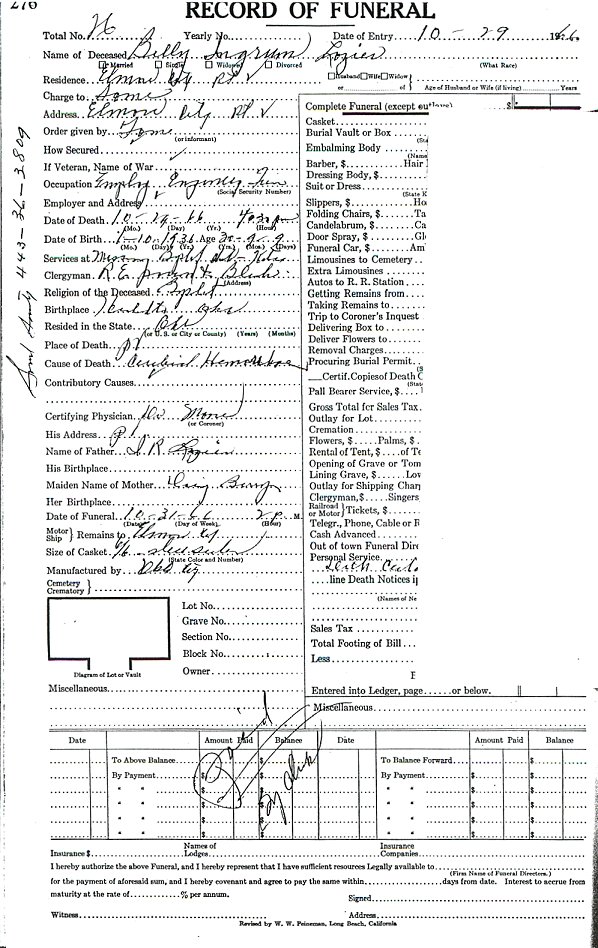 276
RECORD OF FUNERAL
Total No. Yearly No. Date of Entry 10-29 1966
Name of Deceased Billy Ingrum Lozier
Married Single Widowed Divorced (What Race)
Residence Elmore City Rt V Husband Wife Widow
or of Age of Husband or Wife (if living) Years
Charge to Same
Address Elmore City Rt V
Order given by Same
(or informant)
How Secured
If Veteran, Name of War
Occupation
(Social Security Number)
Employer and Address
Date of Death 10-29-66 4:30 pm
(Mo.) (Day) (Yr.) (Hour)
Date of Birth 1-10-1936 Age 30-9-9
(Mo.) (Day) (Yr.) (Yrs.) (Mos.) (Days)
Services at
Clergyman R.E.
(Address)
Religion of the Deceased Baptist
Birthplace Okla
Resided in the State Okla
(or U. S. or City or County) (Years) (Months)
Place of Death PV
Cause of Death Cerebral Hemorrhage
Contributory Causes
Certifying Physician Dr
(or Coroner)
His Address P V
Name of Father J. R. Lozier
His Birthplace
Maiden Name of Mother
Her Birthplace
Date of Funeral 10-31-66 2 p M.
(Date) (Day of Week) (Hour)
Motor Ship Remains to Elmore City
Size of Casket 6/6
(State Color and Number)
Manufactured by
Cemetery
Crematory
Lot No.
Grave No.
Section No.
Block No.
Owner
Diagram of Lot or Vault
Miscellaneous
Soc. Security 443-36-2809
Complete Funeral (except outlays) $
Casket
Burial Vault or Box
Embalming Body
(Name
Barber, $ Hair
Dressing Body, $
Suit or Dress
(State K
Slippers, $ Ho
Folding Chairs, $ Ta
Candelabrum, $ Ca
Door Spray, $ Gl
Funeral Car, $ Am
Limousines to Cemetery
Extra Limousines
Autos to R. R. Station
Getting Remains from
Taking Remains to
Trip to Coroner's Inquest
Delivering Box to
Deliver Flowers to
Removal Charges
Procuring Burial Permit
Certif. Copies of Death C
(State
Pall Bearer Service, $
Gross Total for Sales Tax
Outlay for Lot
Cremation
Flowers, $ Palms, $
Rental of Tent, $ of Te
Opening of Grave or Tom
Lining Grave, $ Lo
Outlay for Shipping Char
Clergyman, $ Singers
Railroad or Motor Tickets, $
Telegr., Phone, Cable or R
Cash Advanced
Out of town Funeral Dire
Personal Service
line Death Notices i
(Names of Ne
Sales Tax
Total Footing of Bill
Less
Entered into Ledger, page or below.
Miscellaneous
Date Amount Paid Balance Date Amount Paid Balance
To Above Balance $ $ To Balance Forward $ $
By Payment $ $ By Payment $ $
" " $ $ " " $ $
" " $ $ " " $ $
" " $ $ " " $ $
" " $ $ " " $ $
Paid
Insurance $ Names of Lodges Insurance Companies
I hereby authorize the above Funeral, and I hereby represent that I have sufficient resources Legally available to
(First Name of Funeral Directors.)
for the payment of aforesaid sum, and I hereby covenant and agree to pay the same within days from date. Interest to accrue from
maturity at the rate of % per annum. Signed
Witness Address
Revised by W. W. Peineman, Long Beach, California